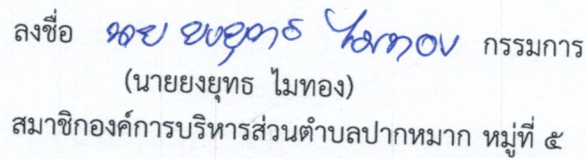 ลงชื่อ นาย ยงยุทธ ไมทอง กรรมการ
(นายยงยุทธ ไมทอง)
สมาชิกองค์การบริหารส่วนตำบลปากหมาก หมู่ที่ ๕